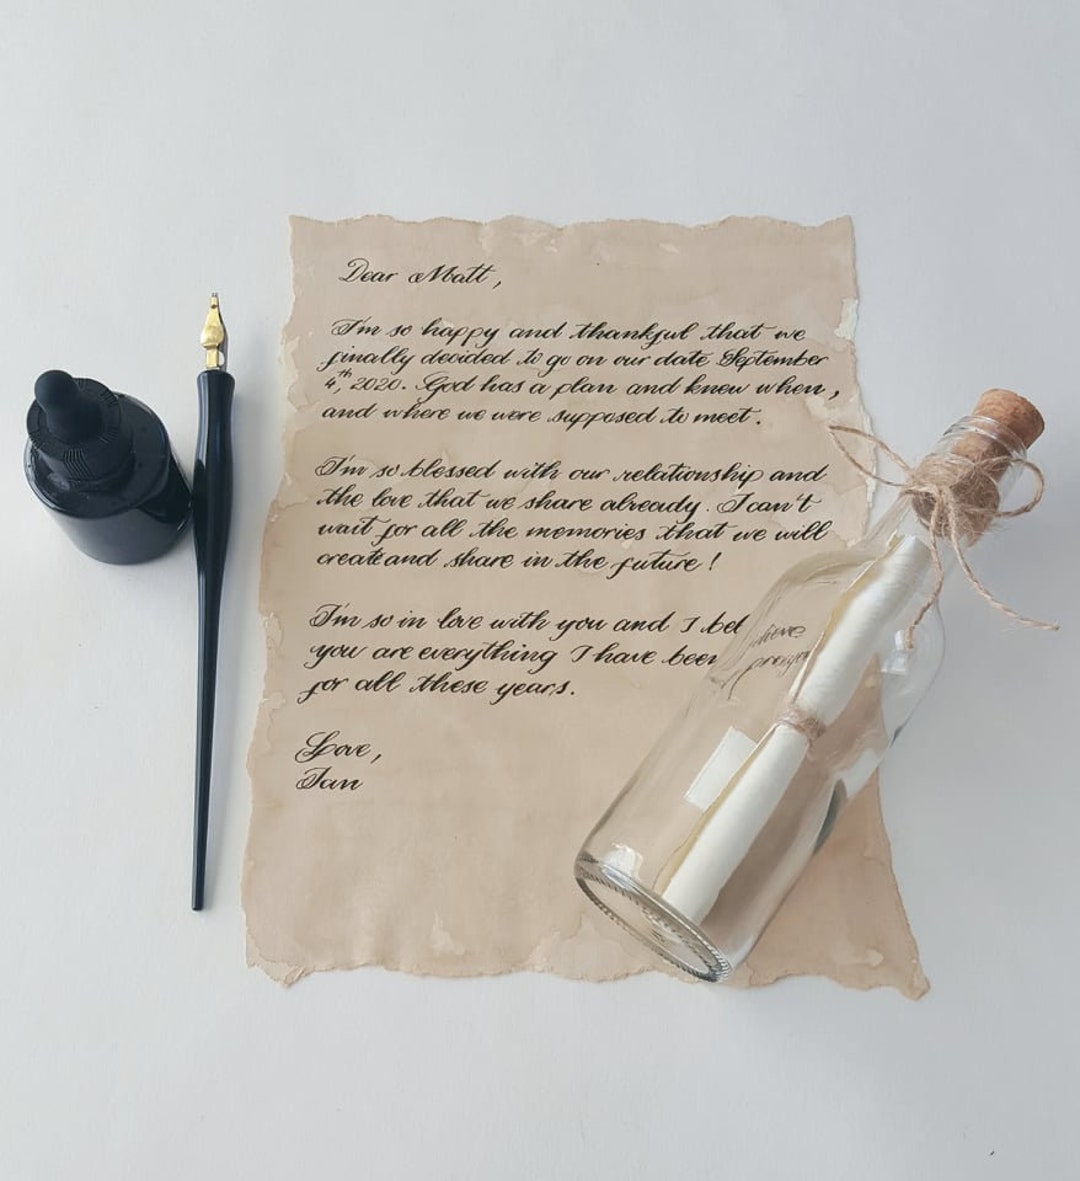 Dear Matt,
I'm so happy and thankful that we
finally decided to go on our date September
4th, 2020. God has a plan and knew when,
and where we were supposed to meet.
I'm so blessed with our relationship and
the love that we share already. I can't
wait for all the memories that we will
create and share in the future!
I'm so in love with you and I believe
you are everything I have been
for all these years.
Love,